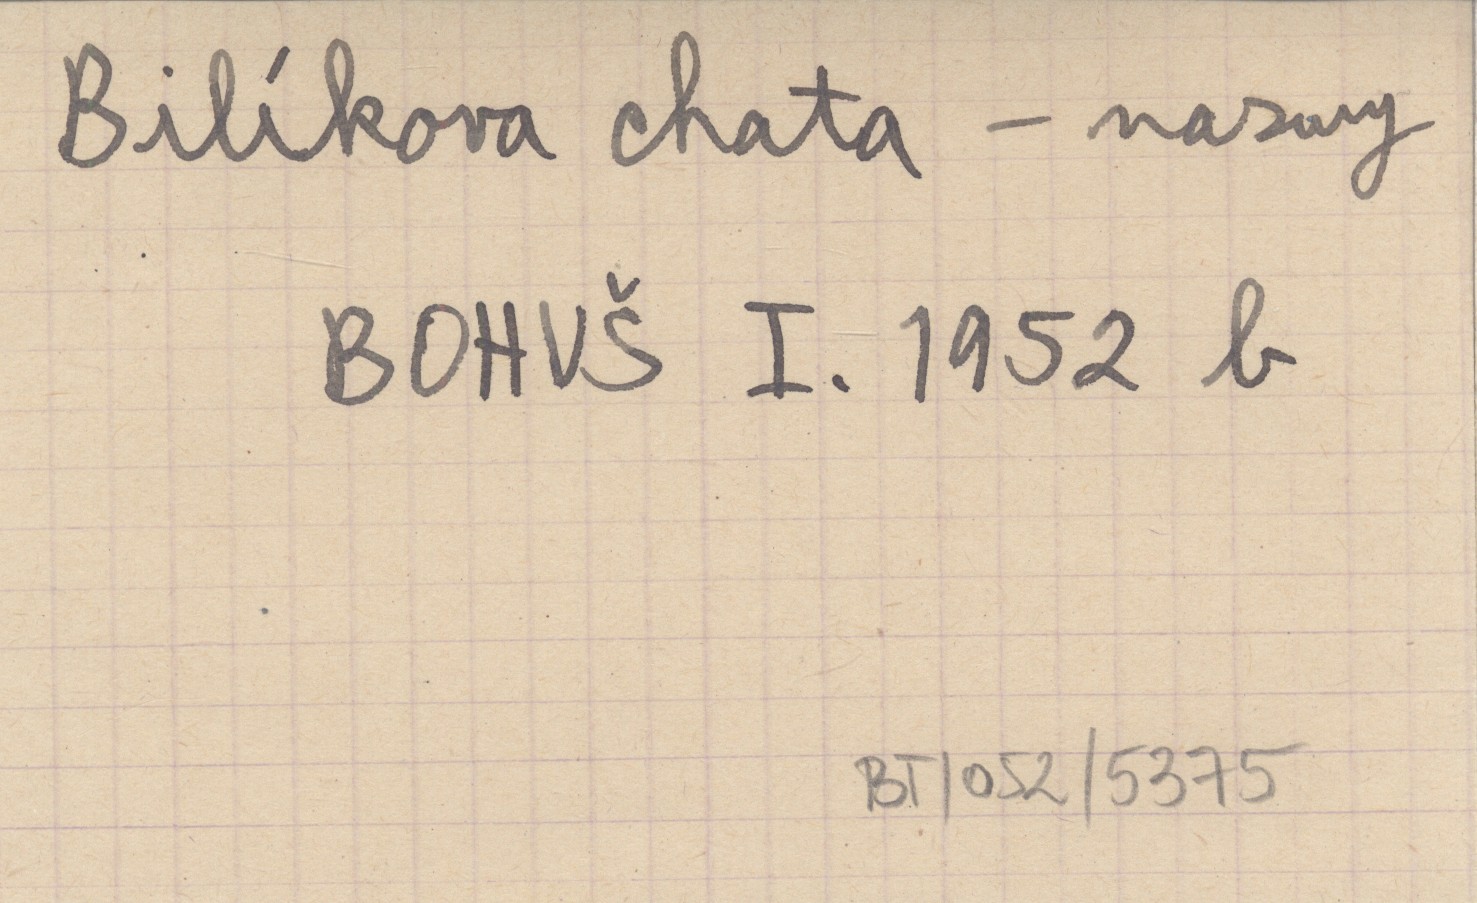 Bilíkova chata – nazwy
BOHUŠ I. 1952 b
BT/052/5375